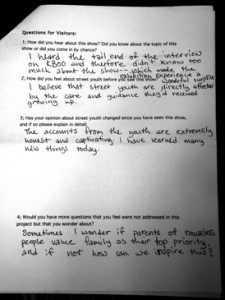 Questions for Visitors:
1: How did you hear about this show? Did you know about the topic of this
show or did you come in by chance?
I heard the tail end of the interview
on KBOO and therefore didn't know too
much about the show — which made the
exhibition experience a
wonderful surprise
2: How did you feel about street youth before you saw this show?
I believe that street youth are directly affected
by the care and guidance they'd received
growing up.
3: Has your opinion about street youth changed since you have seen this show,
and if so please explain in detail;
The accounts from the youth are extremely
honest and captivating, I have learned many
new things today.
4; Would you have more questions that you feel were not addressed in this
project but that you wonder about?
Sometimes I wonder if parents of houseless
people value family as their top priority,
and if not how can we inspire this?